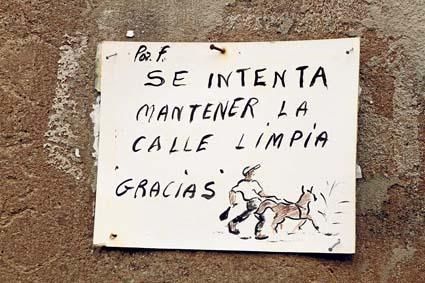 Por. F.
SE INTENTA
MANTENER LA
CALLE LIMPIA
GRACIAS